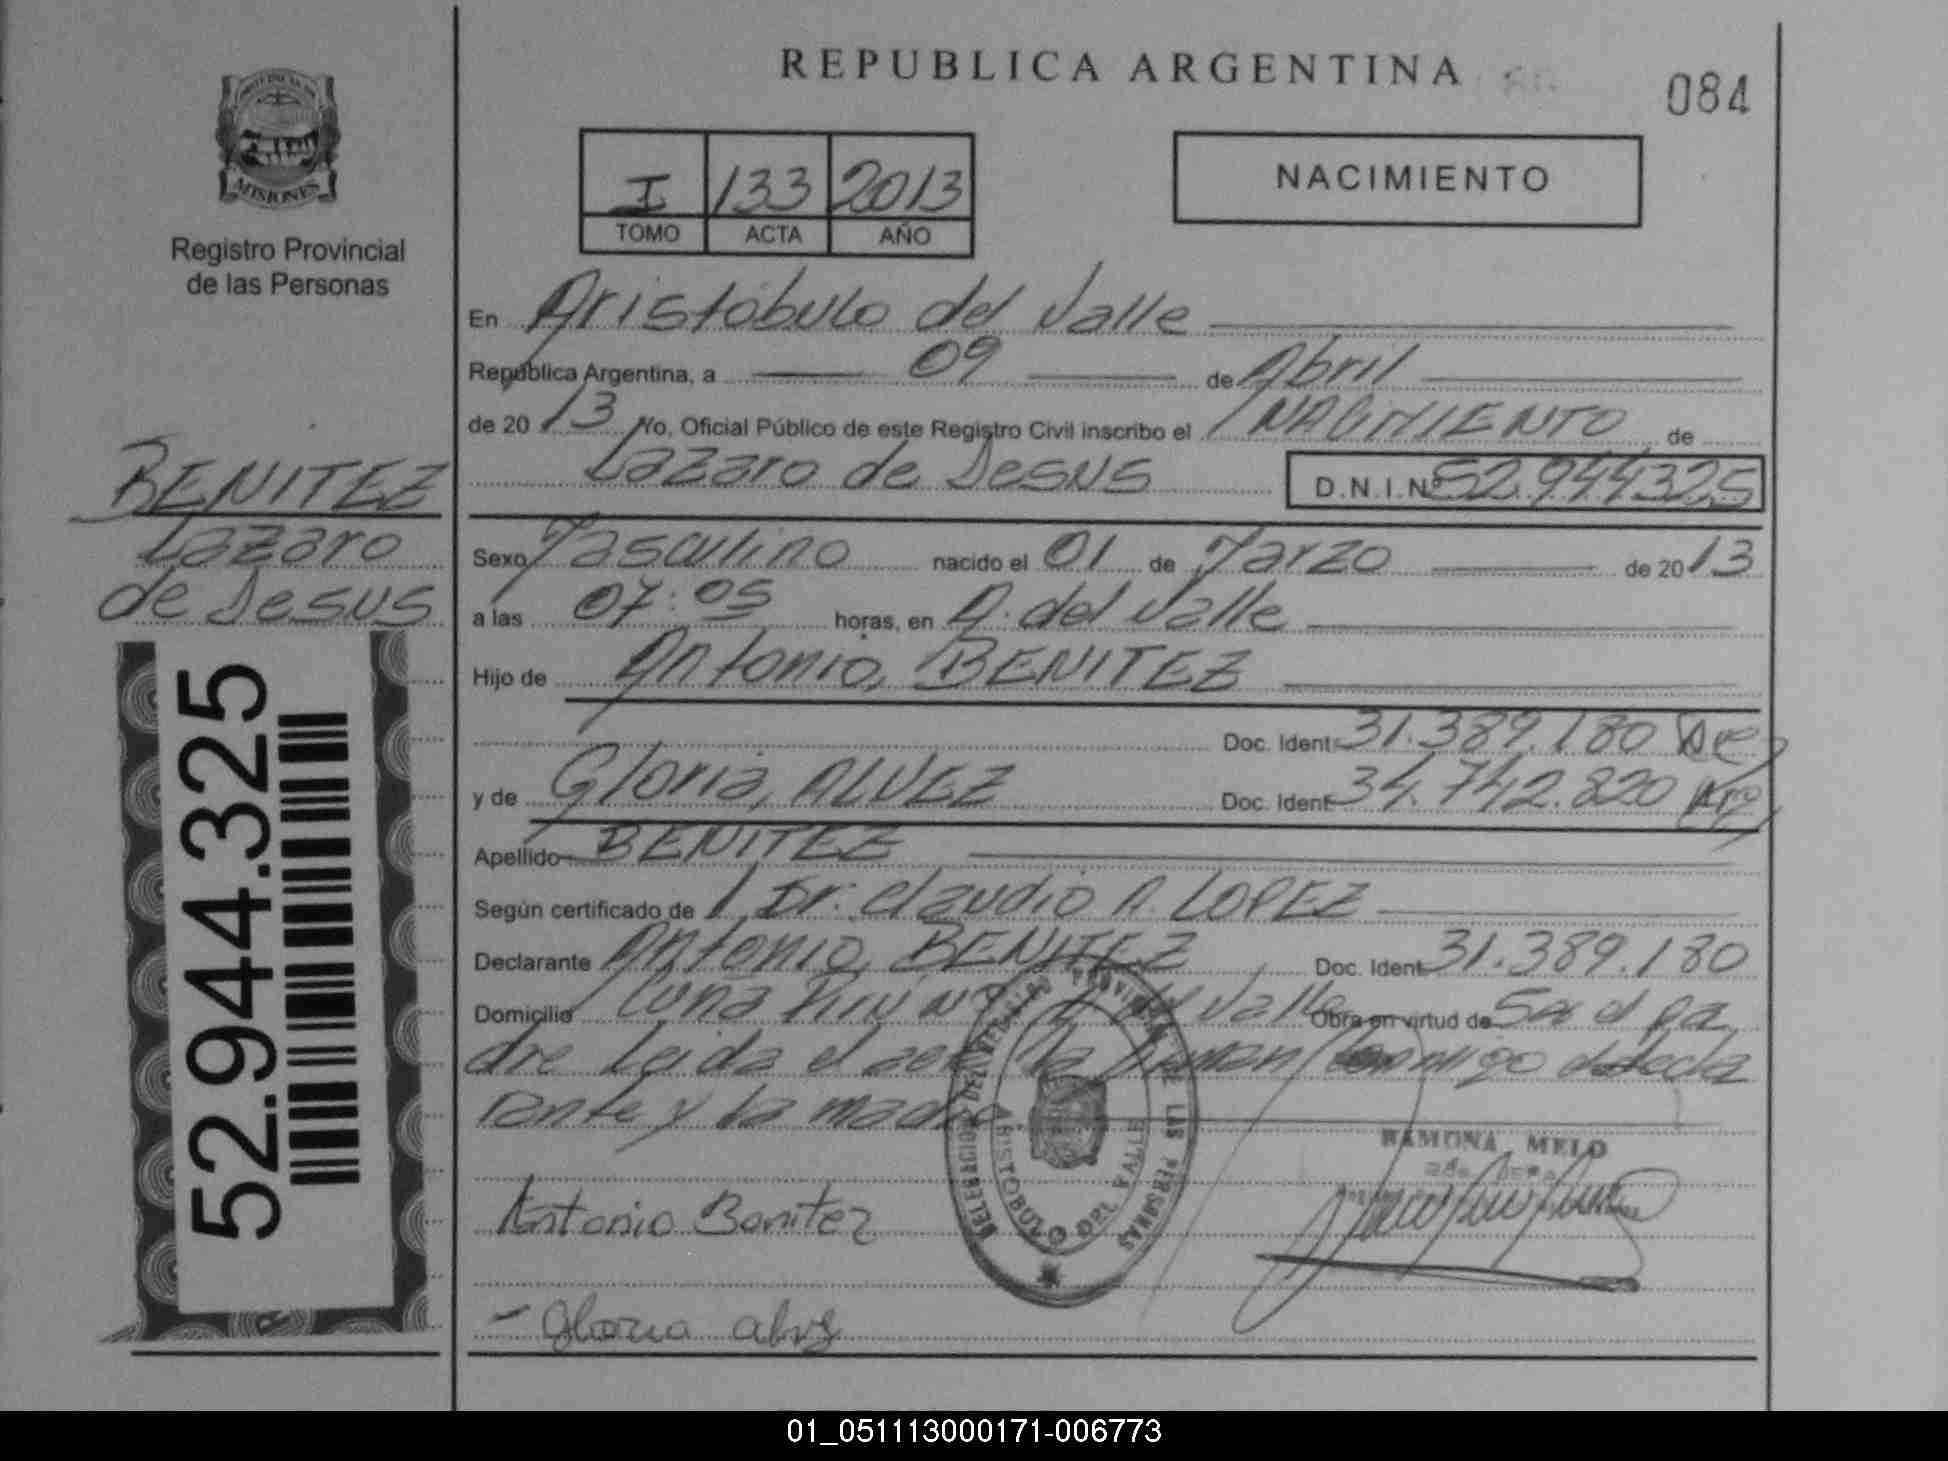 REPUBLICA ARGENTINA
084
PROVINCIA DE
MISIONES
Registro Provincial
de las Personas
I 133 2013
TOMO ACTA AÑO
NACIMIENTO
En Aristóbulo del Valle
República Argentina, a 09 de Abril
de 20 13 Yo, Oficial Público de este Registro Civil inscribo el NACIMIENTO de
Lazaro de Jesus D.N.I.Nº 52.944325
BENITEZ
Lazaro
de Jesus
52.944.325
Sexo Masculino nacido el 01 de Marzo de 20 13
a las 07:05 horas, en A. del Valle
Hijo de Antonio, BENITEZ
Doc. Ident. 31.389.180
y de Gloria, ALVEZ Doc. Ident. 34.742.820
Apellido BENITEZ
Según certificado de Dr. Claudio A. LOPEZ
Declarante Antonio, BENITEZ Doc. Ident. 31.389.180
Domicilio Cuña Pirú Valle Obra en virtud de Ser el pa
dre Leida el acta la firman conmigo el decla
rante y la madre
DELEGACION DEL REGISTRO PROVINCIAL DE LAS PERSONAS
ARISTOBULO DEL VALLE
RAMONA MELO
Antonio Benitez
- Gloria alvez
01_051113000171-006773